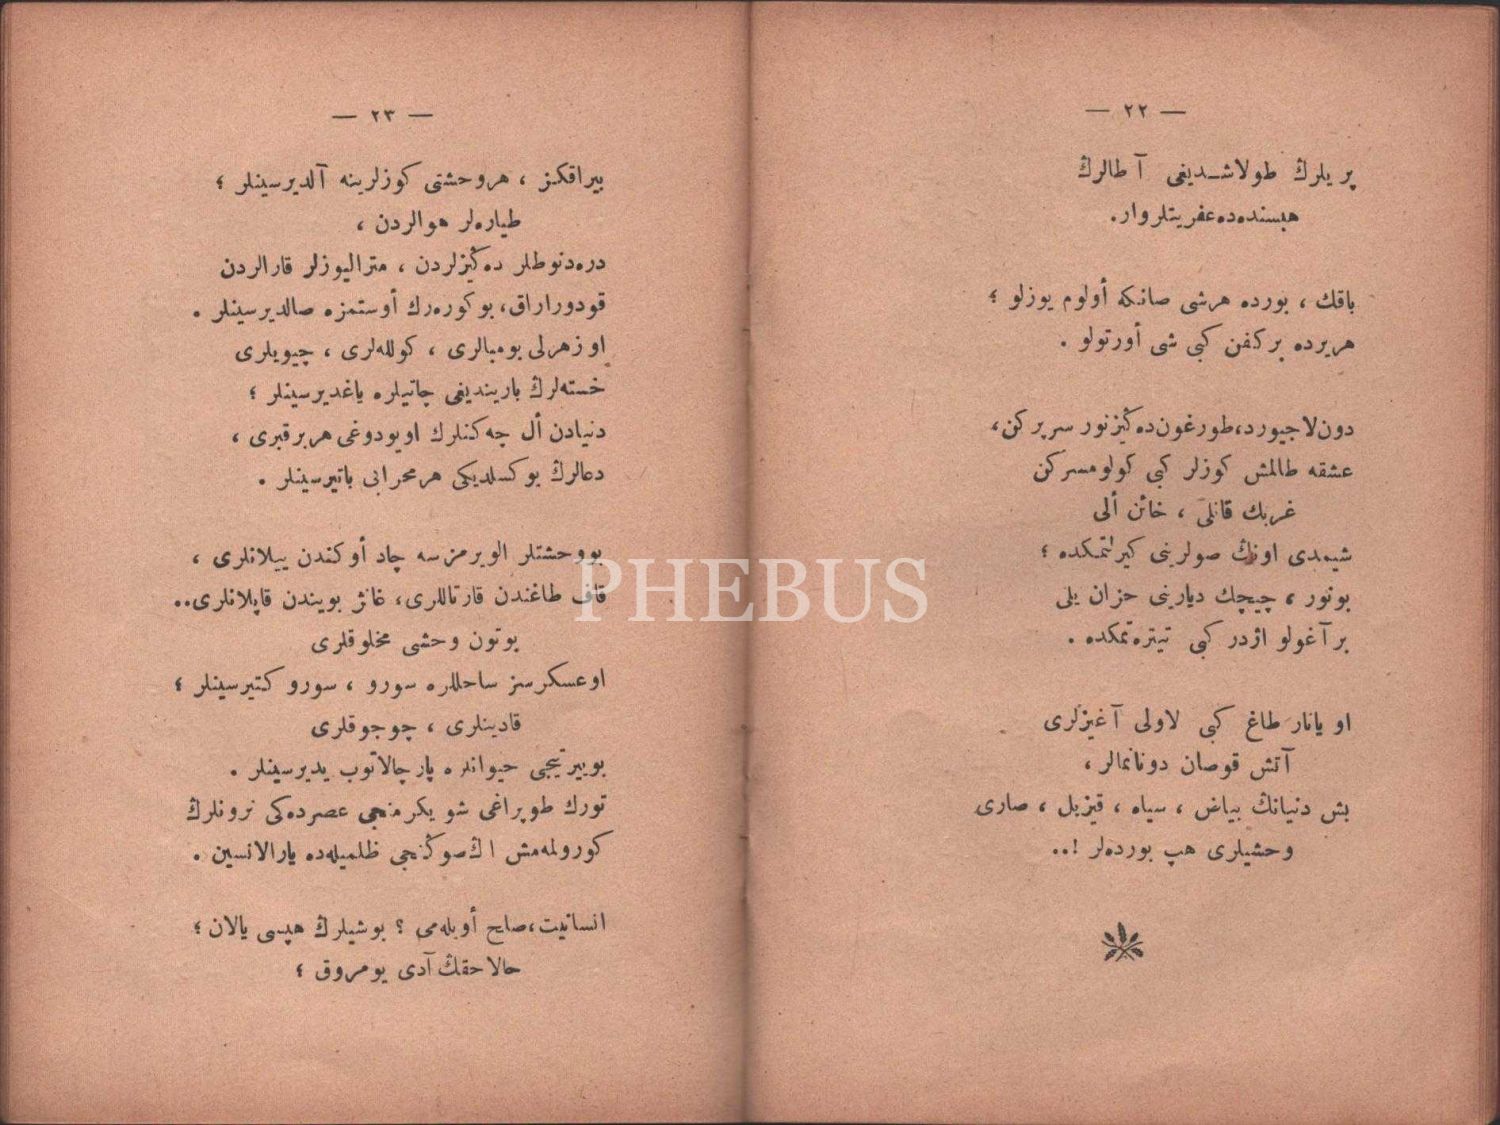 — ٢٢ —
پريلرڭ طولاشديغی آطالرڭ
هپسنده ده عفريتلر وار.
باقك ، بورده هرشی صانكه أولوم يوزلو ؛
هريرده بركفن كبی شی أورتولو .
دون لاجيورد، طورغون ده ڭيزنور سرپركن،
عشقه طالمش كوزلر كبی كولومسركن
غربك قانلی ، خائن ألی
شيمدی اونڭ صولرينی كيرلتمكده ؛
بونور ، چيچك ديارينی حزان يلی
برآغولو اژدر كبی تيتره تمكده .
او يانار طاغ كبی لاولی آغيزلری
آتش قوصان دونانمالر ،
بش دنيانڭ بياض ، سياه ، قيزيل ، صاری
وحشيلری هپ بورده لر !..
— ٢٣ —
بيراقكز ، هروحشتی كوزلرينه آلديرسينلر ؛
طياره لر هوالردن ،
دره دنوطلر ده ڭيزلردن ، متراليوزلر قارالردن
قودوراراق، بوكوره رك أوستمزه صالديرسينلر .
او زهرلی بومبالری ، كولله لری ، چيويلری
خسته لرڭ باريندیغی چاتيلره ياغديرسينلر ؛
دنيادن أل چه كنلرك اويودوغی هربرقبری ،
دعالرڭ يوكسلديكی هرمحرابی باتيرسينلر .
بووحشتلر الويرمزسه چاد أوكندن ييلانلری ،
قاف طاغندن قارتاللری، غانژ بويندن قاپلانلری..
بوتون وحشی مخلوقلری
اوعسكرسز ساحللره سورو ، سورو كتيرسينلر ؛
قادينلری ، چوجوقلری
بوييرتيجی حيوانلره پارچالاتوب يديرسينلر .
تورك طوپراغی شو يكرمنجی عصرده كی نرونلرڭ
كورولمه مش اڭ صوڭنجی ظلميله ده يارالانسين .
انسانيت، صلح أويله می ؟ بوشيلرڭ هپسی يالان ؛
حالا حقڭ آدی يومروق ؛
PHEBUS